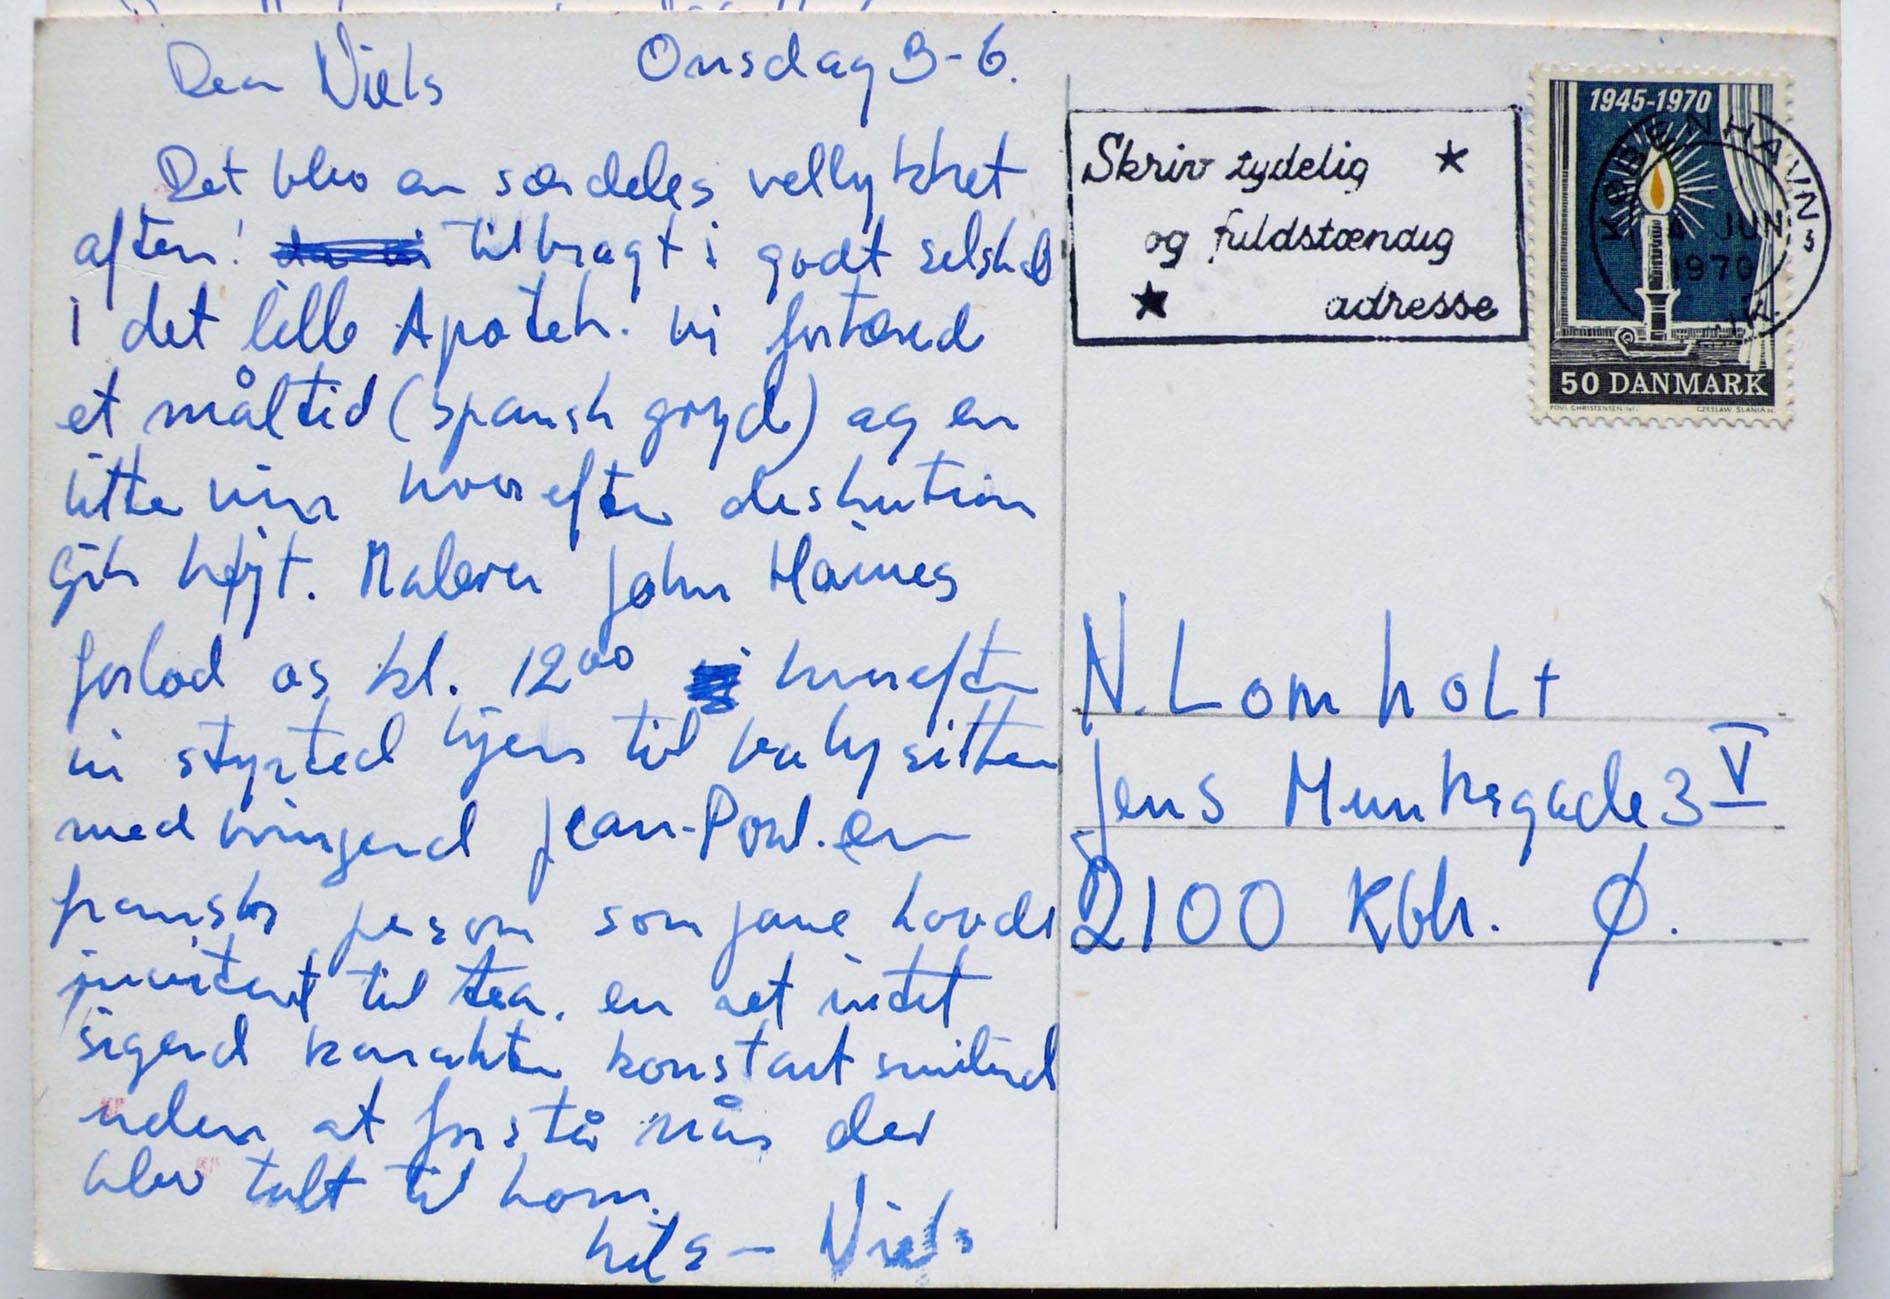 Dear Niels Onsdag 3-6.
Det blev en særdeles vellykket
aften! tilbragt i godt selskab
i det lille Apotek. vi fortæred
et måltid (spansk gryd) og en
litte vin hvorefter diskution
gik højt. Maleren John Haines
forlod os kl. 12⁰⁰ hvorefter
vi styrted hjem til babysitten
medbringend Jean-Poul. en
fransk person som jane havde
inviteret til tea. en ret intet
sigend karakter konstant smilend
uden at forstå når der
blev talt til ham.
hils – Niels
Skriv tydelig
og fuldstændig
adresse
1945-1970
KØBENHAVN
4 JUN
1970
50 DANMARK
POVL CHRISTENSEN
CZESLAW SLANIA
N. Lomholt
Jens Munksgade 3 V
2100 Kbh. Ø.